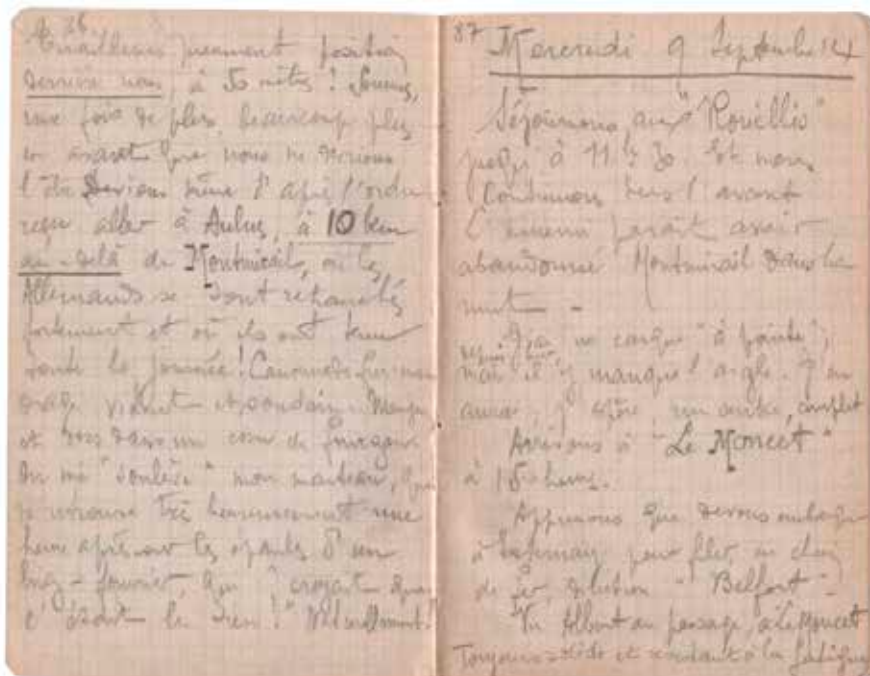 86
Tirailleurs prennent position
derrière nous, à 50 mètres ! Sommes,
une fois de plus, beaucoup plus
en avant que nous ne devrions
l'être. Devions même d'après l'ordre
reçu aller à Aulnes, à 10 km
au-delà de Montmirail, où les
Allemands se sont retranchés
fortement et où ils ont tenu
toute la journée !
orage violent et soudain. Mange
et dors dans un coin de fourragère
On m'a "soulevé" mon manteau, que
je retrouve très heureusement une
heure après sur les épaules d'un
brig-fourrier, qui "croyait que
c'était le sien !" Naturellement !
87 Mercredi 9 Septembre 14
Séjournons aux "Rouillis"
jusqu'à 11 h 30. Et nous
continuons vers l'avant
L'ennemi paraît avoir
abandonné Montmirail dans la
nuit -
J'ai un casque "à pointe",
mais il y manque l'aigle. J'en
aurai, j'espère un autre, complet
Arrivons à "Le Moncet"
à 15 heures.
Apprenons que devons embarquer
à Epernay pour filer en chemin
de fer, direction "Belfort" -
Vu Albert au passage, à Le Moncet
Toujours solide et résistant à la fatigue